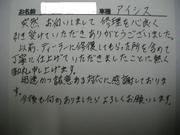 お名前 車種 アイシス
突然お伺いしまして修理を心良く
引き受けていただきありがとうございました。
以前、ディーラーに修復してもらった箇所を含めて
丁寧に仕上げていただきましたことに熱く
御礼申し上げます。
迅速かつ誠意ある対応に感謝しております。
今後も何かありましたらよろしくお願いします。